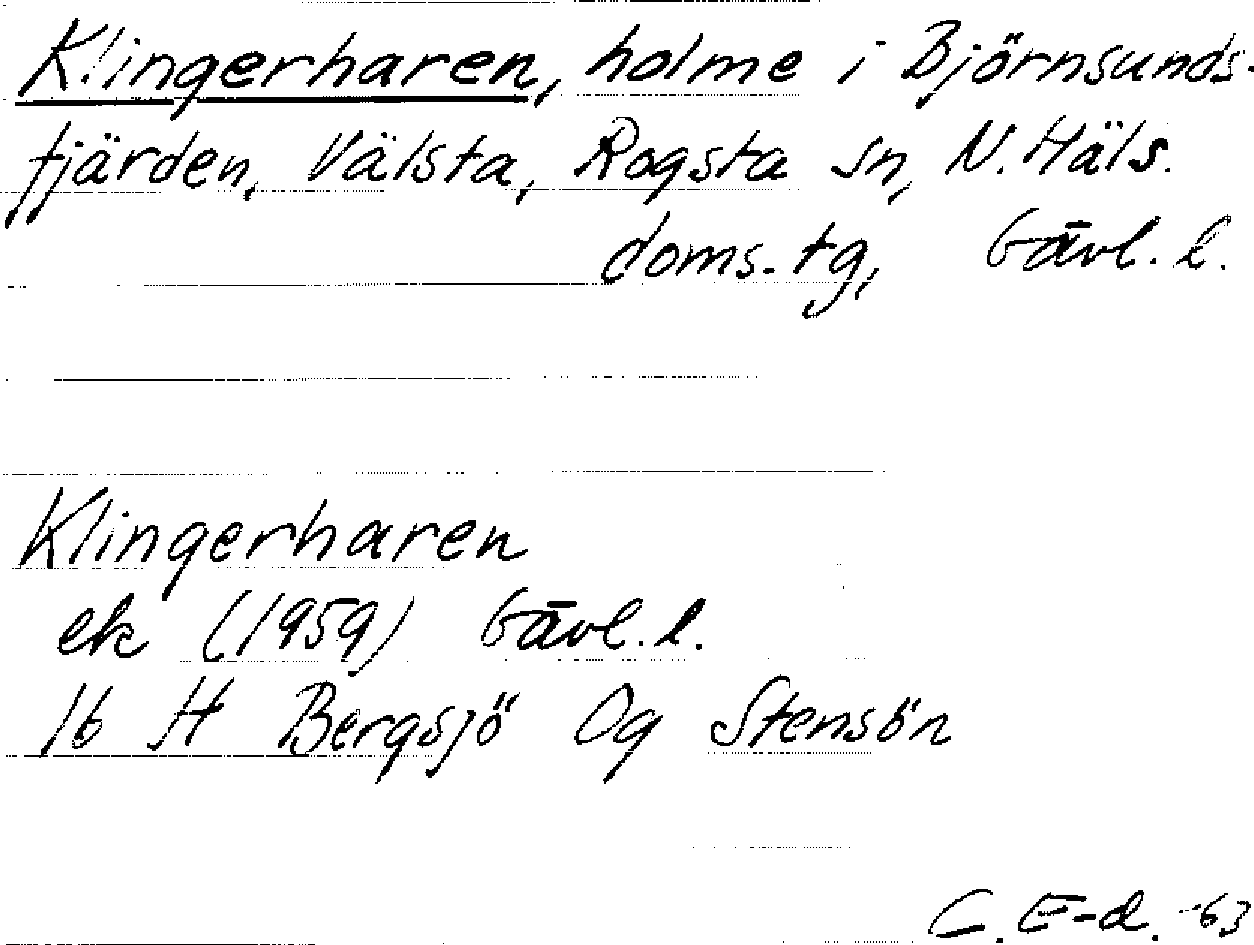 Klingerharen, holme i Björnsunds-
fjärden, Välsta, Rogsta sn, N. Häls.
doms. tg, Gävl. l.
Klingerharen
ek (1959) Gävl. l.
16 H Bergsjö Og Stensön
C. E-d. -63